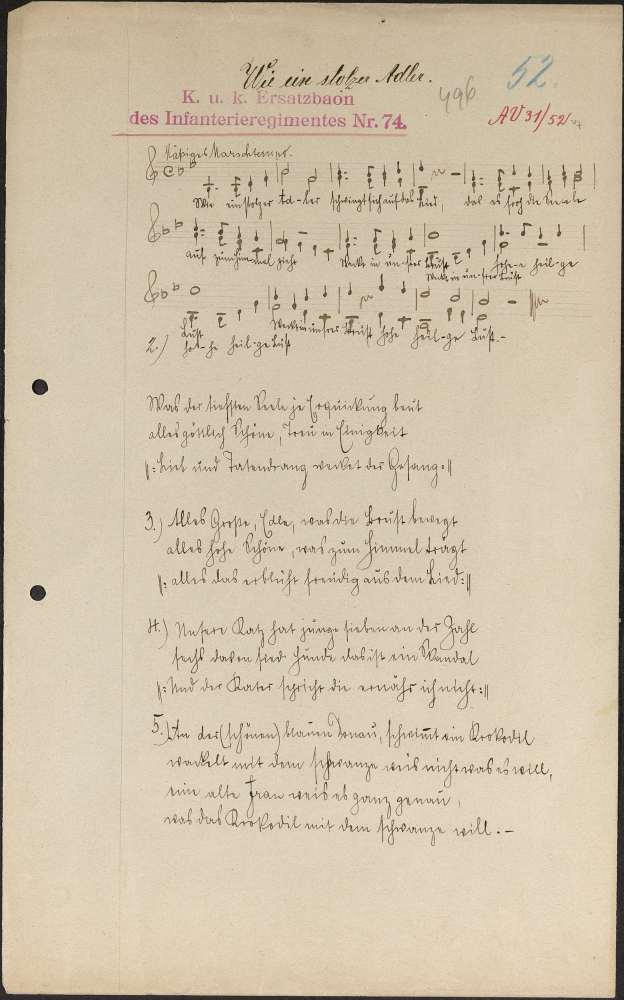 Wie ein stolzer Adler.
52.
496
K. u. k. Ersatzbaon
des Infanterieregimentes Nr. 74.
AV 31/52
Mäßiges Marschtempo.
Wie ein stolzer Ad-ler schwingt sich auf das Lied, daß es froh die Seele
auf zum Himmel zieht Weckt in un-srer Brust hohe-e heil-ge
Weckt in un-srer Brust
Lust Weckt in unsrer Brust hohe heil-ge Lust.-
ho-he heil-ge Lust
2.)
Was der tiefsten Seele je Erquickung beut
alles göttlich Schöne, Treu in Einigkeit
||: Lieb und Tatendrang wecket der Gesang :||
3.) Alles Große, Edle, was die Brust bewegt
alles hohe Schöne, was zum Himmel tragt
||: alles das erblüht freudig aus dem Lied :||
4.) Unsere Katz hat junge sieben an der Zahl
sechs davon sind Hunde das ist ein Skandal
||: Und der Kater spricht die ernähr ich nicht :||
5.) An der (schönen) blauen Donau, schwimt ein Krokodil
wackelt mit dem schwanze weis nicht was es will,
eine alte Frau weis es ganz genau,
was das Krokodil mit dem schwanze will. -